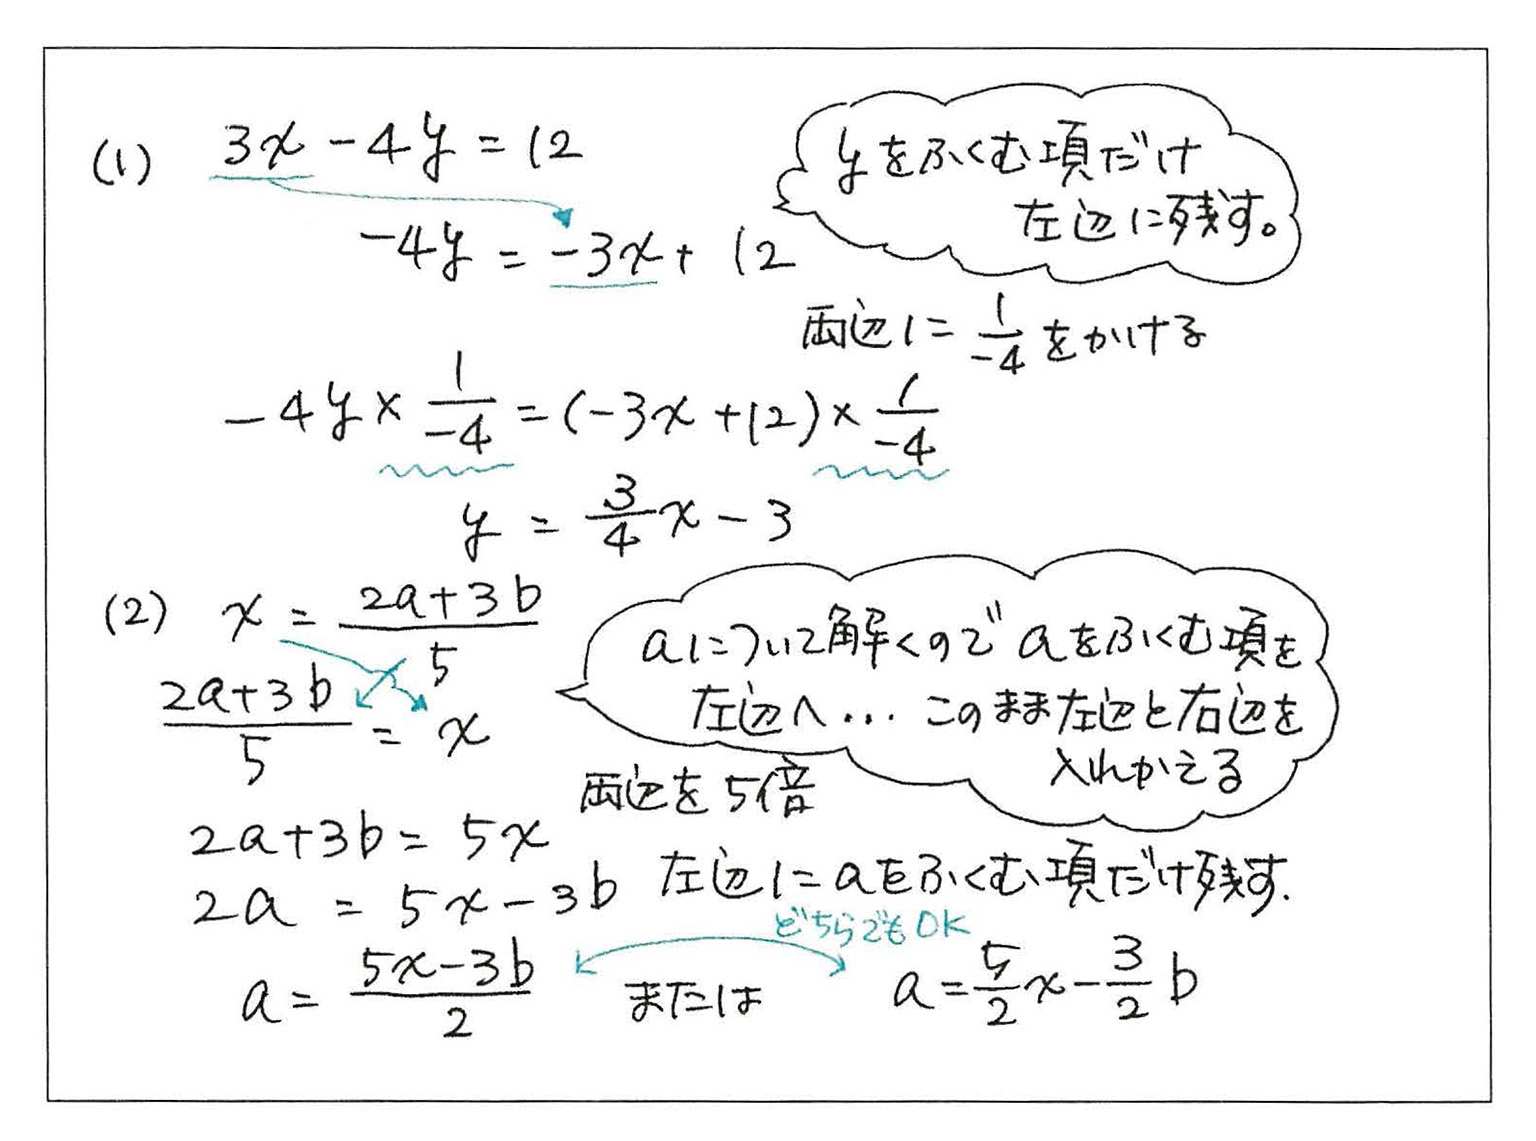 (1) 3x - 4y = 12
yをふくむ項だけ
左辺に残す。
-4y = -3x + 12
両辺に 1/-4 をかける
-4y × 1/-4 = (-3x + 12) × 1/-4
y = 3/4 x - 3
(2) x = 2a+3b/5
aについて解くので aをふくむ項を
左辺へ... このまま左辺と右辺を
入れかえる
2a+3b/5 = x
両辺を5倍
2a+3b = 5x
2a = 5x - 3b 左辺にaをふくむ項だけ残す.
どちらでもOK
a = 5x-3b/2 または a = 5/2 x - 3/2 b